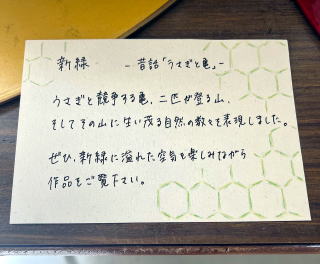 新緑　－昔話「うさぎと亀」－
うさぎと競争する亀、二匹が登る山、
そしてその山に生い茂る自然の数々を表現しました。
ぜひ、新緑に溢れた空気を楽しみながら
作品をご覧下さい。